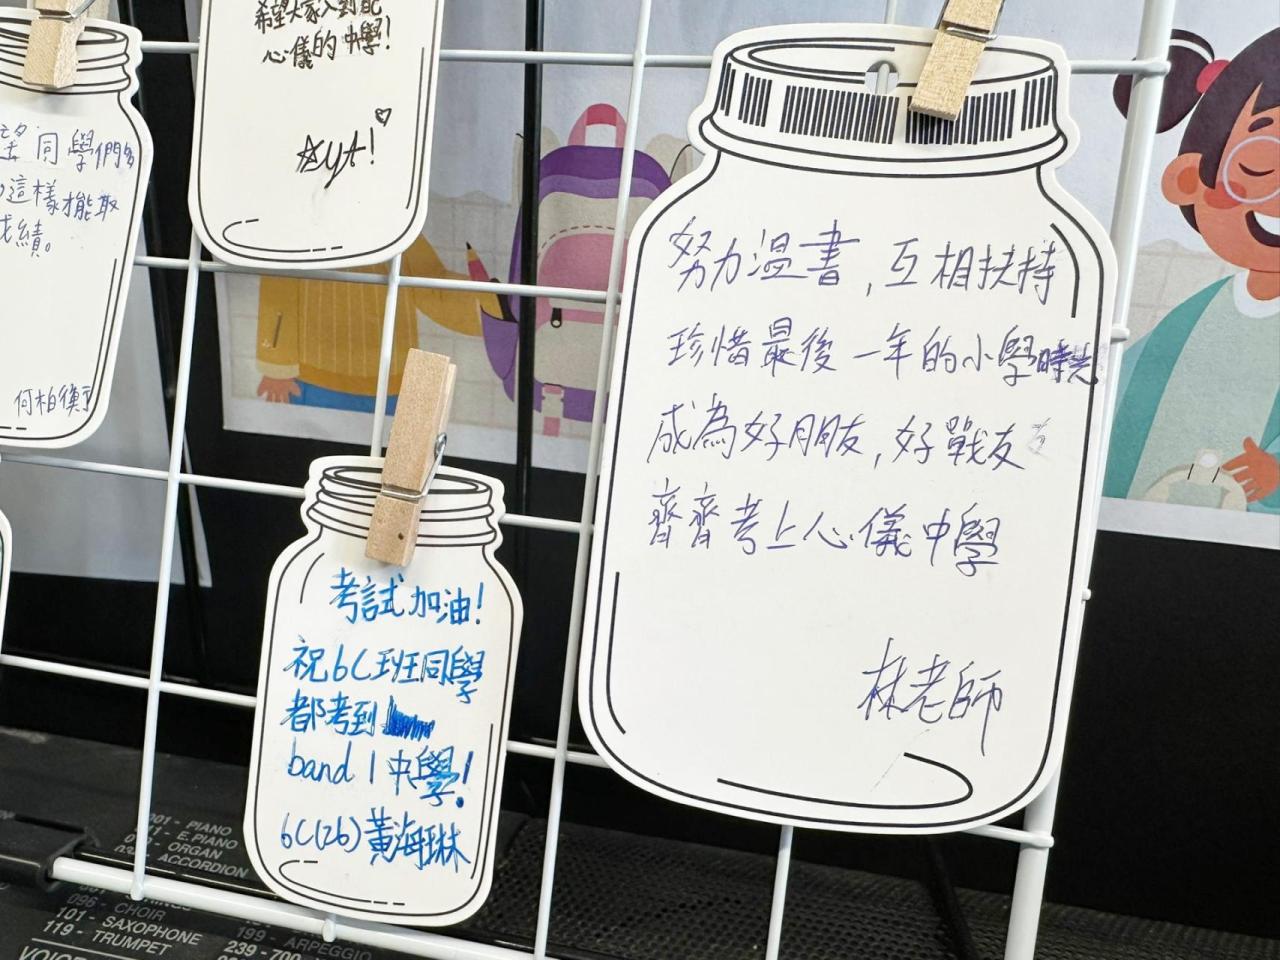 希望大家入到配
心儀的中學!
望同學們多
這樣才能取
成績。
何柏衡
努力溫書,互相扶持
珍惜最後一年的小學時光
成為好朋友,好戰友
齊齊考上心儀中學
林老師
考試加油!
祝6C班同學
都考到
band 1 中學!
6C(26)黃海琳
001 - PIANO
011 - E.PIANO
ORGAN
ACCORDION
096 - CHOIR
101 - SAXOPHONE
119 - TRUMPET
199 - ARPEGGIO
239-700